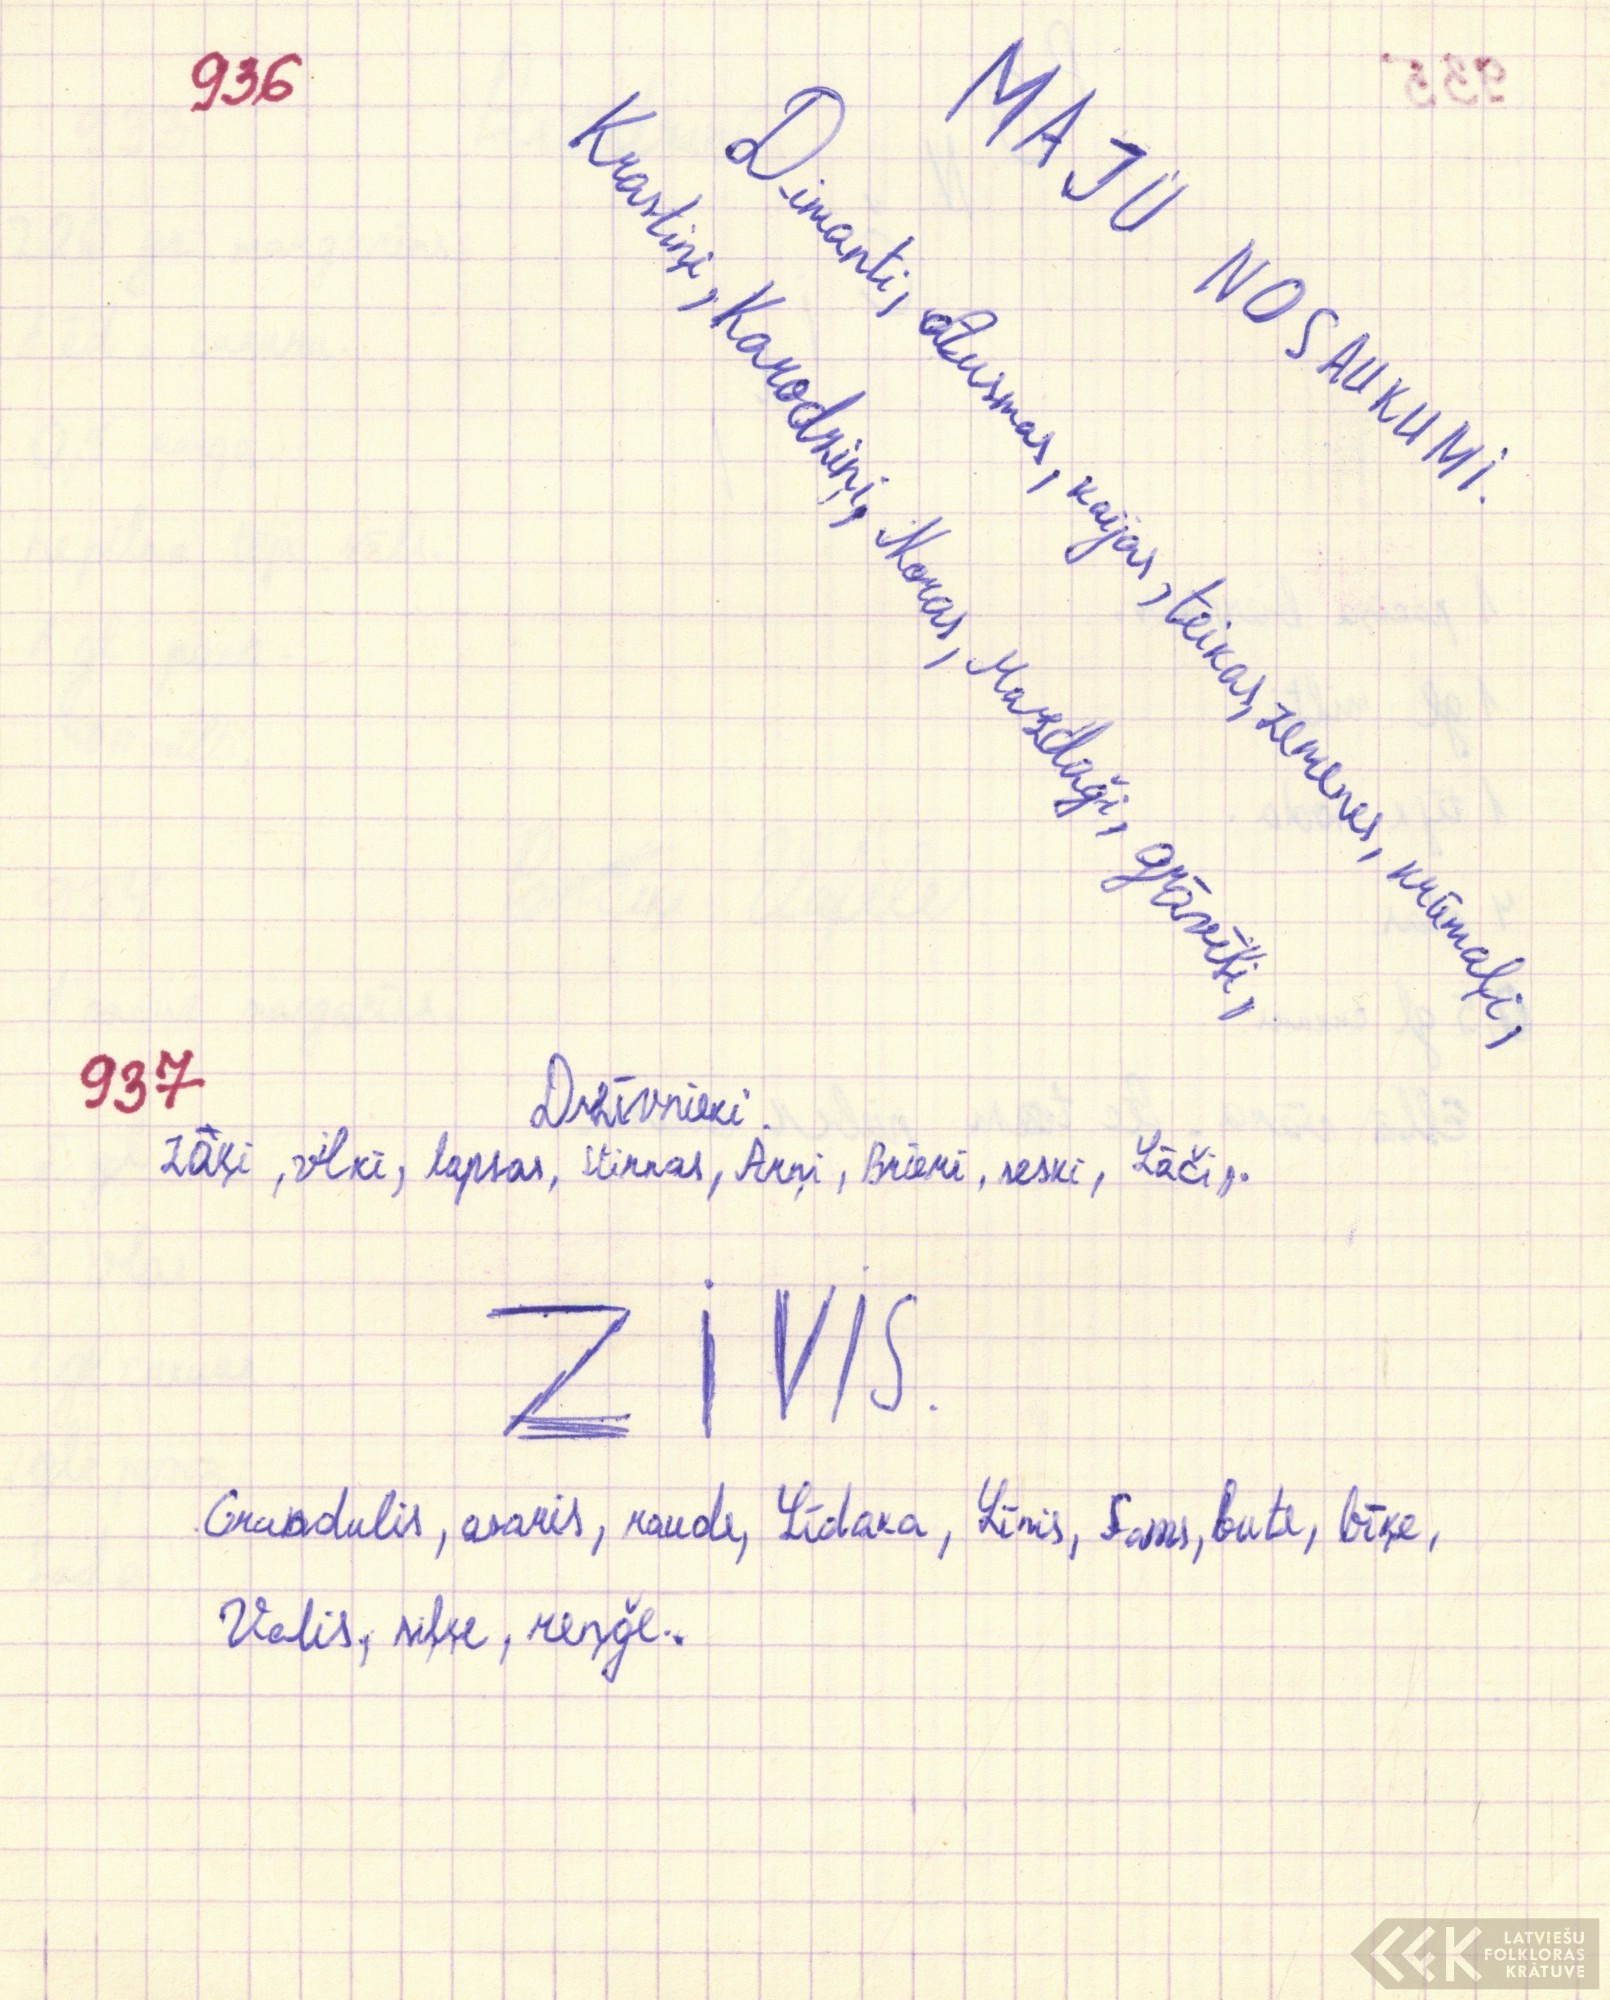 936
MAJU NOSAUKUMI.
Dimanti, atusmas, kaijas, teikas, zemenes, krūmaļi,
Krastiņi, Karodziņi, Noras, Mazdaģi, grāvīši,
937
Dzīvnieki.
zāķi, vilki, lapsas, stirnas, Arņi, Brieri, seski, Lāči,.
ZiVIS.
Grundulis, asaris, raude, Līdaka, Līnis, Sams, bute, bīķe,
Valis, siļķe, reņģe.
LATVIEŠU
FOLKLORAS
KRĀTUVE